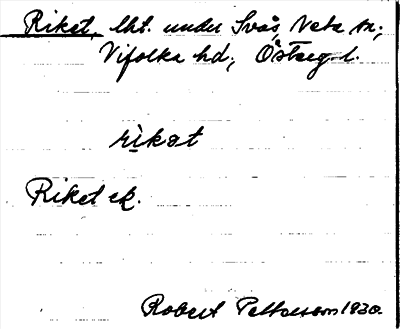 Riket, lht. under Svås, Veta sn;
Vifolka hd; Österg. l.
rikət
Riket ek.
Robert Pettersson 1930.